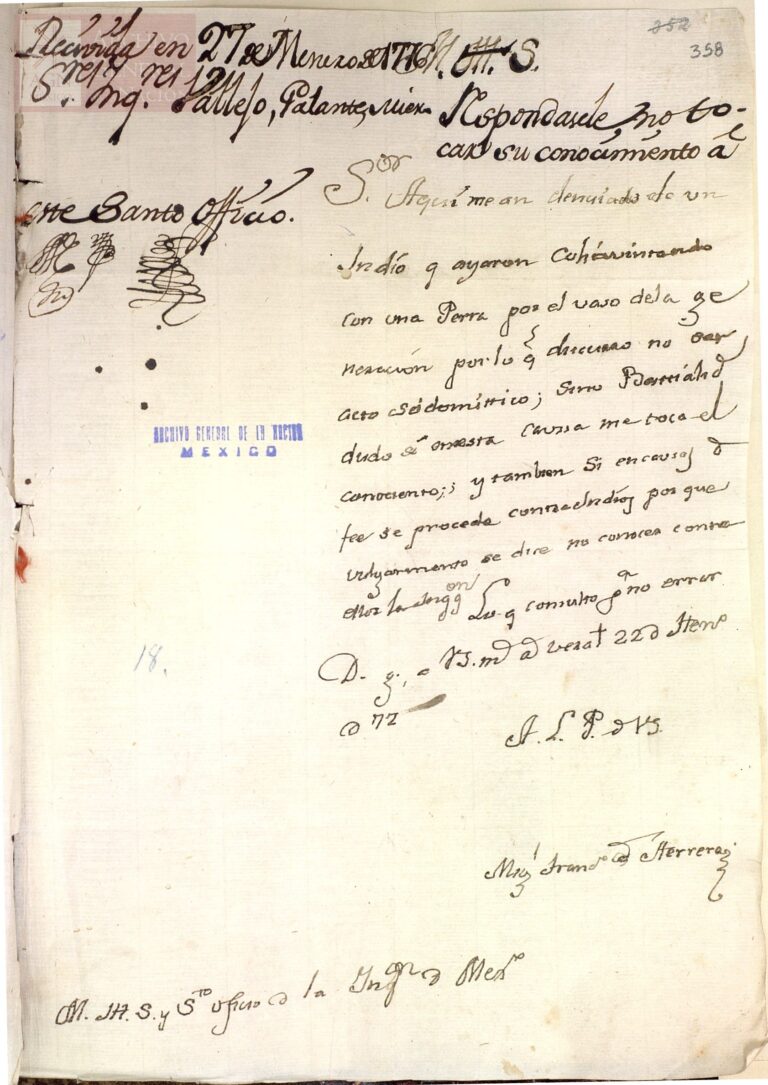 352
358
Recivida en 27 de Henero de 1772 M. Itt. S.
S.res Inq.res Vallejo, Galante, Mier.
Respondasele, no to-
car su conocimiento á
este Santo Officio.
S.or Aqui me an denuciado de un
Indio q ayaron Cohavintando
con una Perra por el vaso de la ge
neracion por lo q discurro no ser
acto Sodomittico; Sino Bestialid
dudo si en esta Caussa me toca el
conociento; y tambien Si en causas d
fee se procede contra Indios por que
vulgarmente se dice no conocer contra
ellos la Inqq.on Lo q consulto pa no errar
D. g. a VS. md ad Vera + 22 d Hen.o
d 72
A. L. P. d VS.
Migl Frando de Herrera
M. Itt. S. y S.to oficio d la Inqn d Mex.o
ARCHIVO GENERAL DE LA NACION
MEXICO
18.